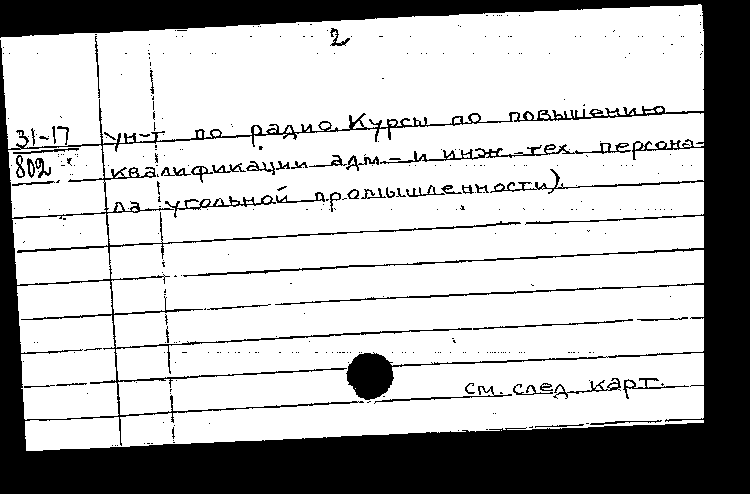 2
31-17
802
ун-т по радио. Курсы по повышению
квалификации адм.- и инж.-тех. персона-
ла угольной промышленности).
см. след. карт.